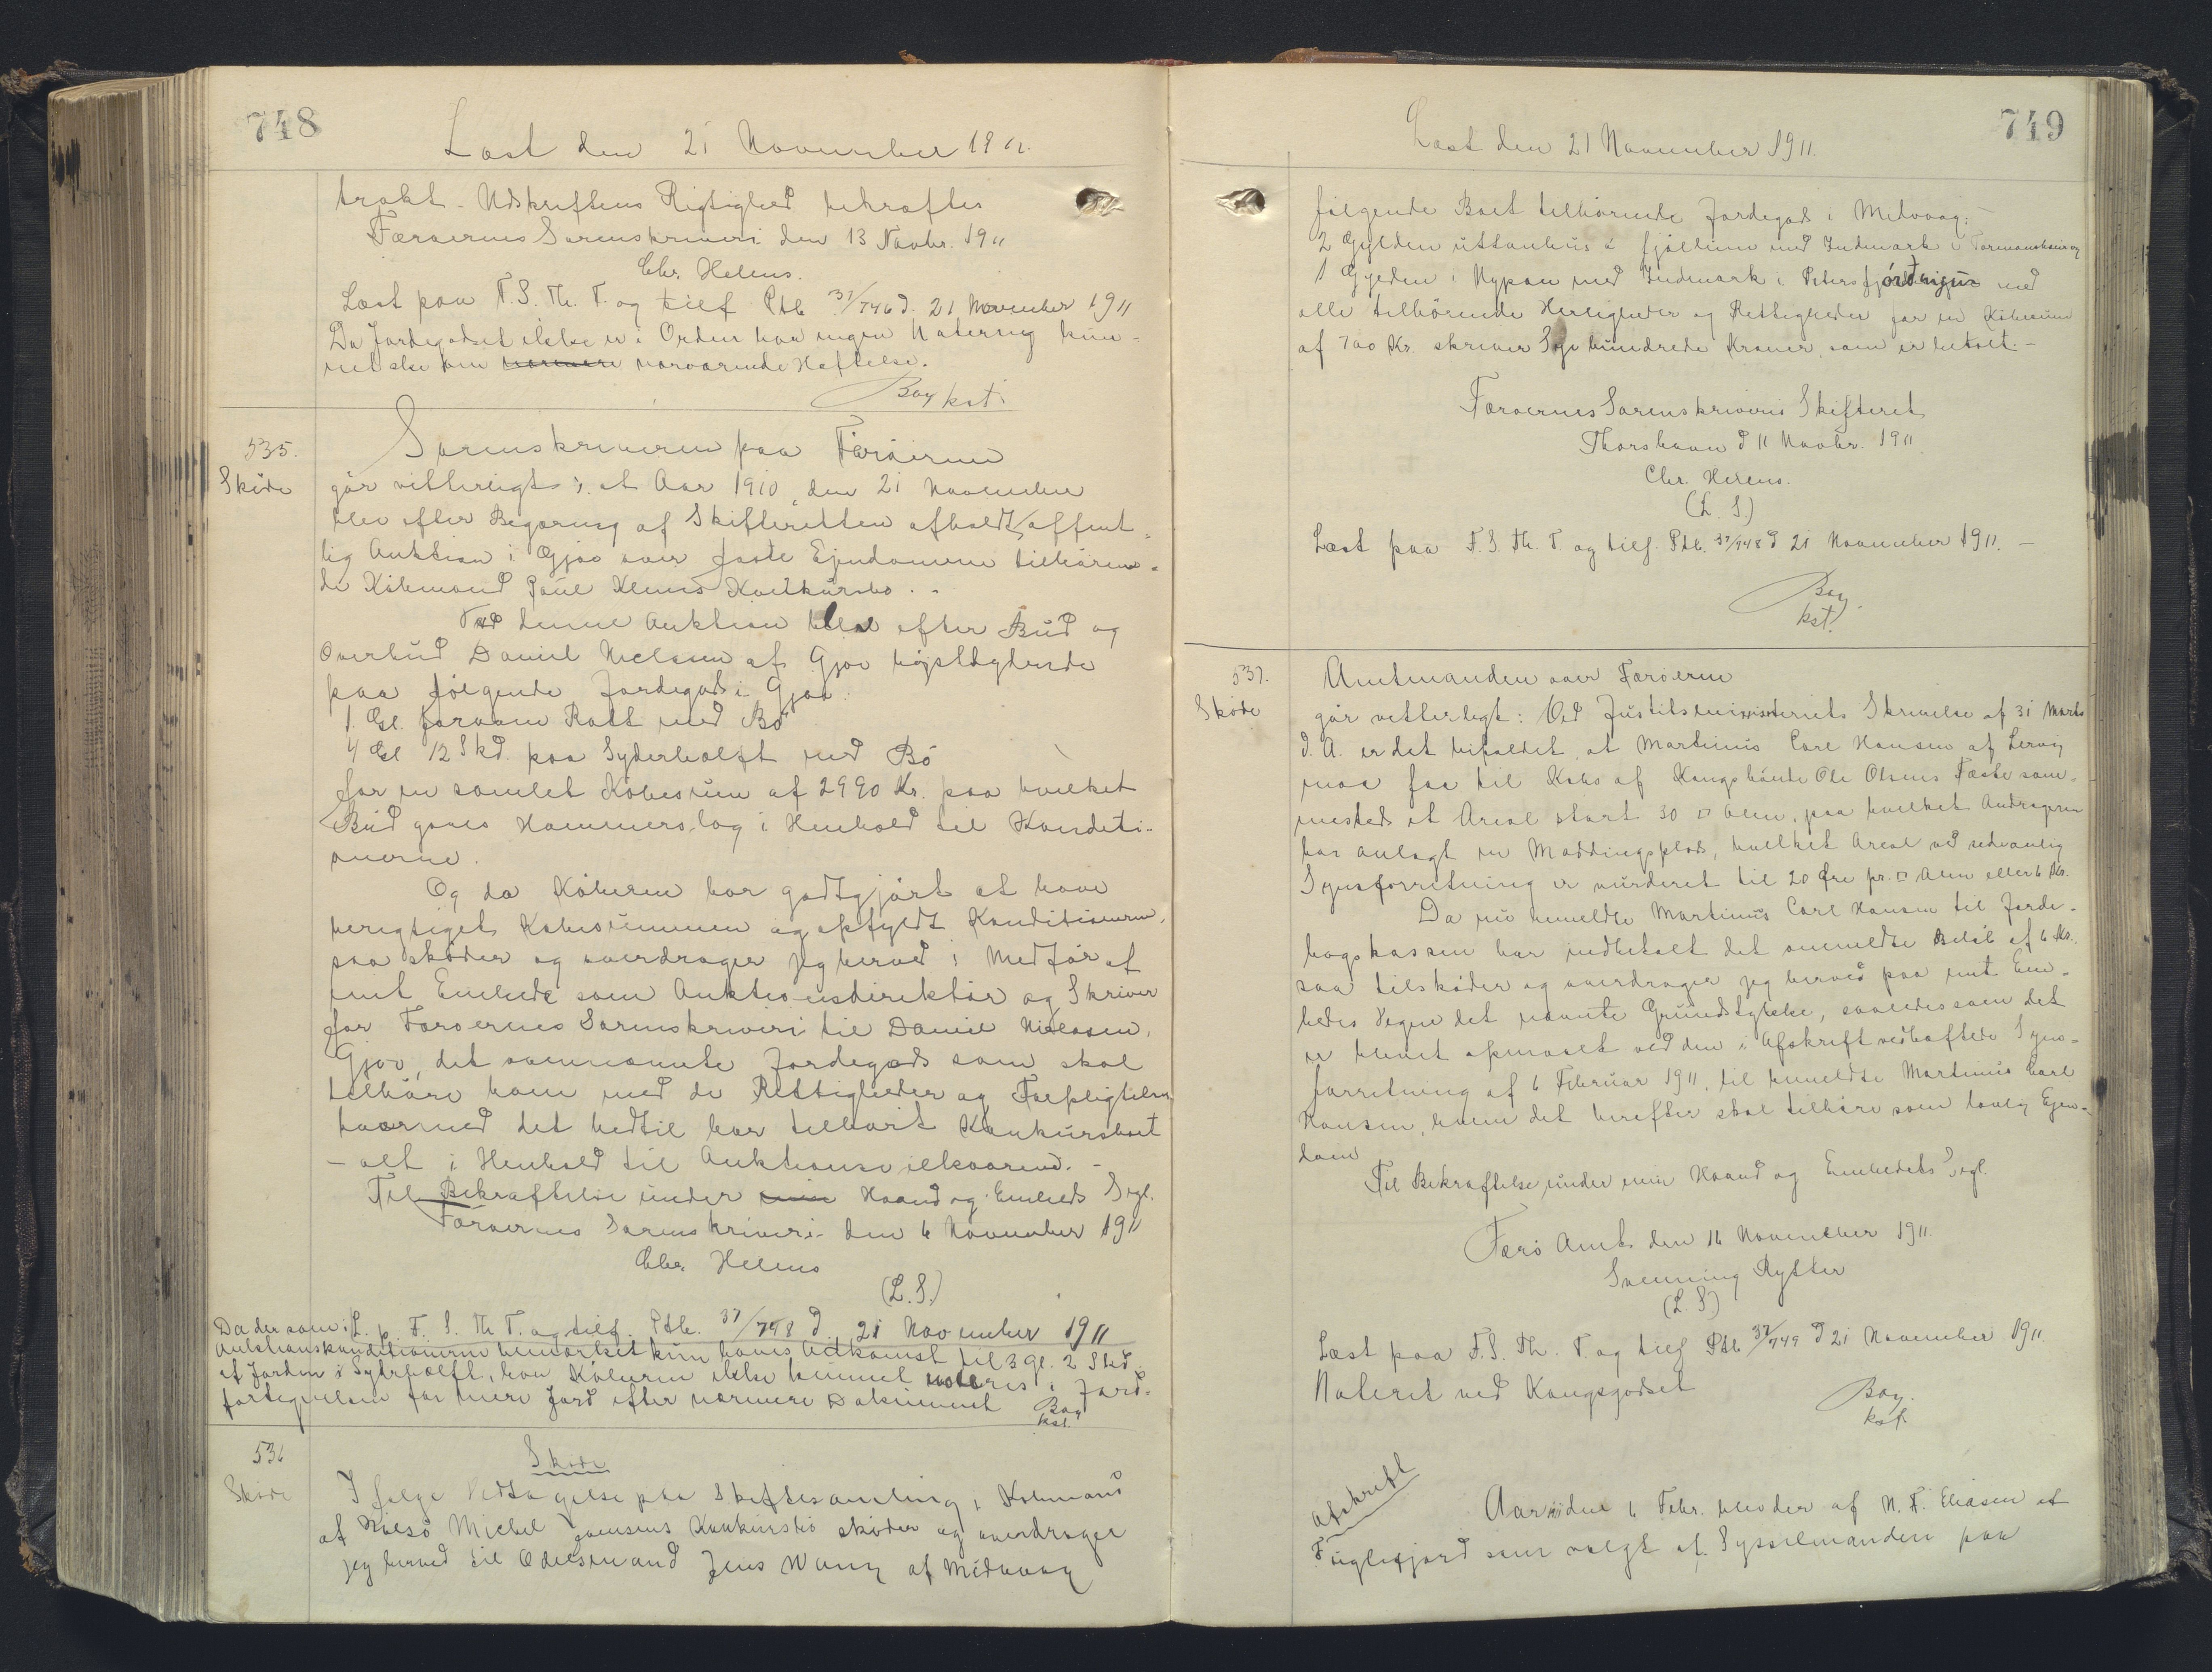 748
Læst den 21 November 1911.
trakt. Udskriftens Rigtighed bekræftes
Færøernes Sorenskriveri den 13 Novbr. 1911
Chr. Helms.
Læst paa F. S. Th. T. og tilf Ptb 37/746 d. 21 November 1911
Da Jordegodset ikke er i Orden har ingen Notering kun-
net ske om nærværende Hæftelse.
Bay kst.
535.
Skøde
Sorenskriveren paa Færøerne
gør vitterligt: at Aar 1910, den 21 November
blev efter Begæring af Skifteretten afholdt offent-
lig Auktion i Gjov over faste Ejendomme tilhøren-
de Købmand Poul Kleins Konkursbo.
Ved denne Auktion blev efter Bud og
Overbud Daniel Nielsen af Gjov højstbydende
paa følgende Jordegods i Gjov:
1 Gl. Ratt med Bø
4 Gl 12 Skd. paa Syderhalft med Bø
for en samlet Købesum af 2990 Kr. paa hvilket
Bud gaves Hammerslag i Henhold til Konditi-
onerne.
Og da Køberen har godtgjort at have
berigtiget Købesummen og opfyldt Konditionerne,
saa skøder og overdrager jeg herved i Medfør af
mit Embede som Auktionsdirektør og Skriver
for Færøernes Sorenskriveri til Daniel Nielsen,
Gjov, det ovennævnte Jordegods som skal
tilhøre ham med de Rettigheder og Forpligtelser
hvormed det hidtil har tilhørt Konkursboet
- alt i Henhold til Auktionsvilkaarene. -
Til Bekræftelse under min Haand og Embeds Segl.
Færøernes Sorenskriveri den 6 November 1911
Chr. Helms
(L. S.)
L. p. F. S. Th T. og tilf. Ptb. 37/748 d. 21 November 1911
Da der som i
Auktionskonditionerne bemærket kun haves Adkomst til 3 Gl. 2 Skd.
af Jorden i Syderhalft, har Køberen ikke kunnet noteres i Jord-
fortegnelsen for mere Jord efter nærmere Dokument
Bay
kst.
536
Skøde
Skøde
I følge Vedtagelse paa Skiftesamling i Købmand
af Nolsø Michel Joensens Konkursbo skøder og overdrager
jeg herved til Odelsmand Jens Wang af Midvaag
749
Læst den 21 November 1911.
følgende Boet tilhørende Jordegods i Midvaag:
2 Gylden uttanhus á fjøllum med Indmark i
1 Gylden i Nypan med Indmark i Peters med
alle tilhørende Herligheder og Rettigheder for en Købesum
af 700 Kr. skriver Syv hundrede Kroner, som er betalt. -
Færøernes Sorenskriveris Skifteret
Thorshavn d 11 Novbr. 1911
Chr. Helms.
(L. S.)
Læst paa F. S. Th. T. og tilf. Ptb. 37/748 d 21 November 1911. -
Bay.
kst.
537.
Skøde
Amtmanden over Færøerne
gør vitterligt: Ved Justitsministeriets Skrivelse af 31 Marts
d. A. er det bifaldet, at Martinus Carl Hansen af Lervig
maa faa til Købs af Kongsbonde Ole Olsens Fæste samme-
steds et Areal stort 30 □ Alen, paa hvilket Andrageren
har anlagt en Møddingsplads, hvilket Areal ved sædvanlig
Synsforretning er vurderet til 20 Øre pr. □ Alen eller 6 Kr.
Da nu bemeldte Martinus Carl Hansen til Jorde-
bogskassen har indbetalt det ommeldte Beløb af 6 Kr.
saa tilskøder og overdrager jeg herved paa mit Em-
bedes Vegne det nævnte Grundstykke, saaledes som det
er blevet opmaalt ved den i Afskrift vedhæftede Syns-
forretning af 6 Februar 1911, til bemeldte Martinus Carl
Hansen, hvem det herefter skal tilhøre som lovlig Ejen-
dom
Til Bekræftelse under min Haand og Embedets Segl.
Færø Amt den 16 November 1911.
Svenning Rytter
(L. S.)
Læst paa F. S. Th. T. og tilf Ptb 37/749 d 21 November 1911.
Noteret ved Kongsgodset
Bay.
kst.
Afskrift
Aar 1911 den 6 Febr. blev der af N. F. Eliasen af
Fuglefjord som valgt af Sysselmanden paa